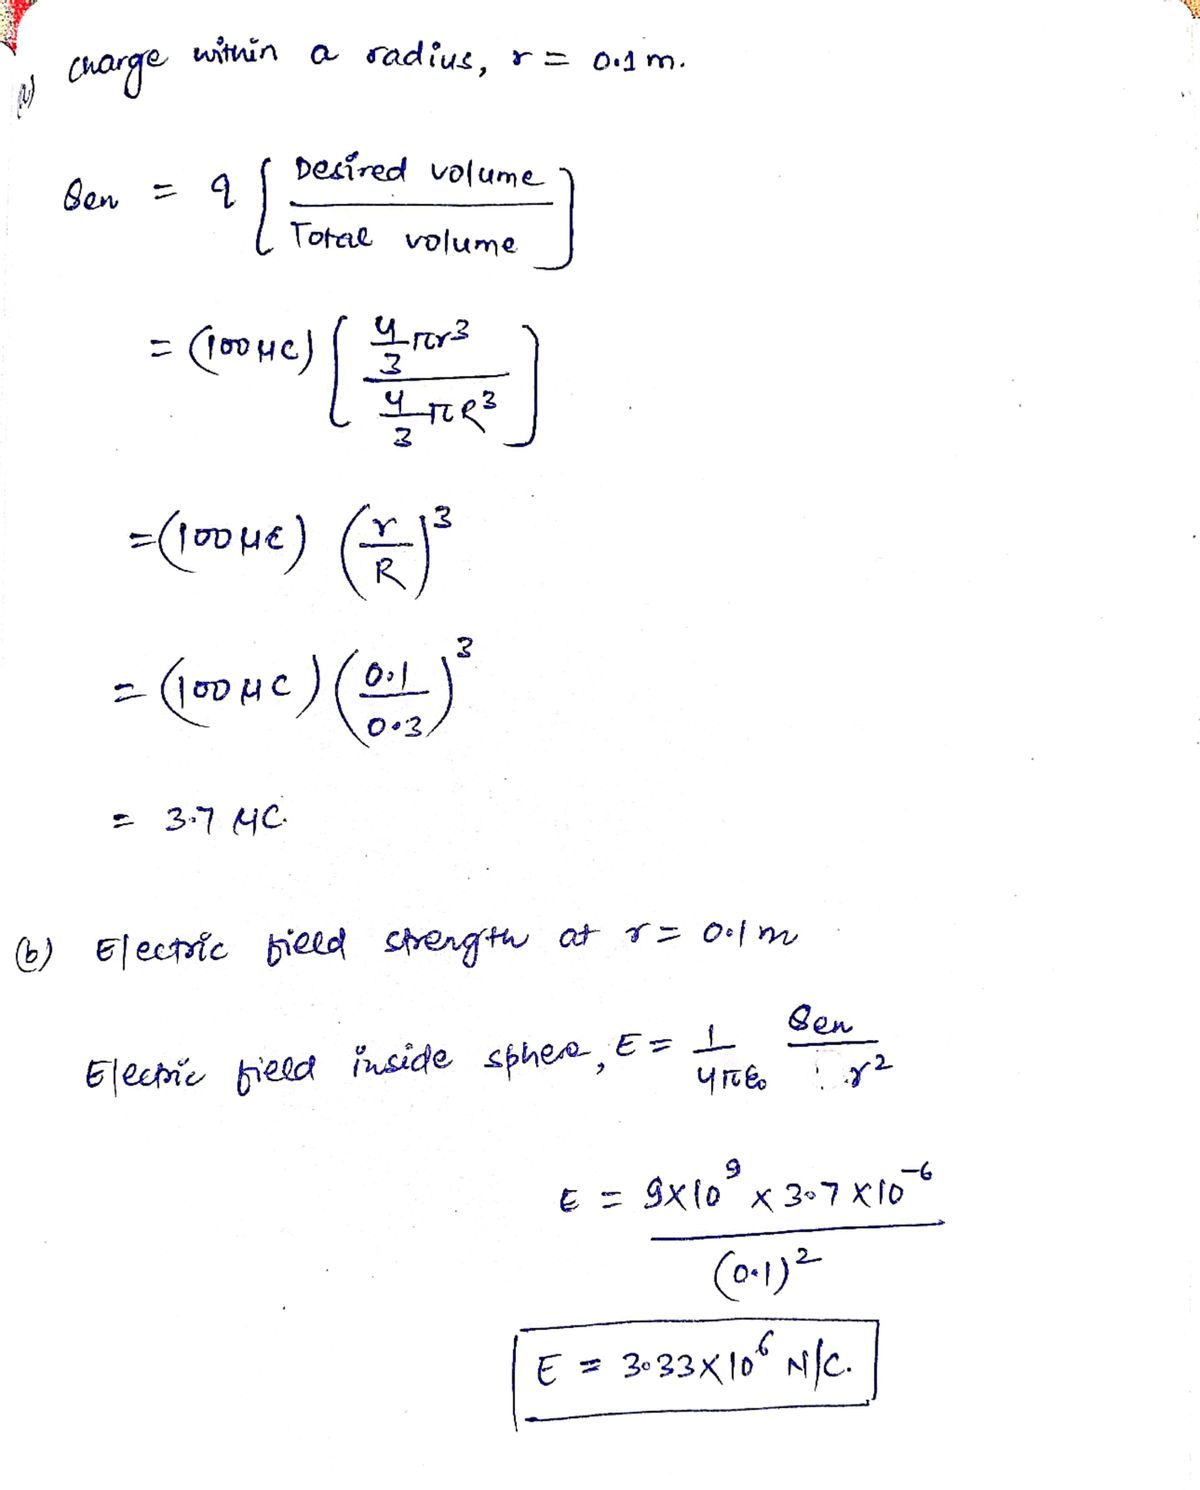 (a) Charge within a radius, r = 0.1 m.
Qen = q [ Desired volume / Total volume ]
= (100 μC) [ 4/3 πr³ / 4/3 πR³ ]
= (100 μC) (r/R)³
= (100 μC) (0.1/0.3)³
= 3.7 μC.
(b) Electric field strength at r = 0.1 m
Electric field inside sphere, E = 1/4πε₀ Qen/r²
E = 9×10⁹ × 3.7 ×10⁻⁶ / (0.1)²
E = 3.33×10⁶ N/C.